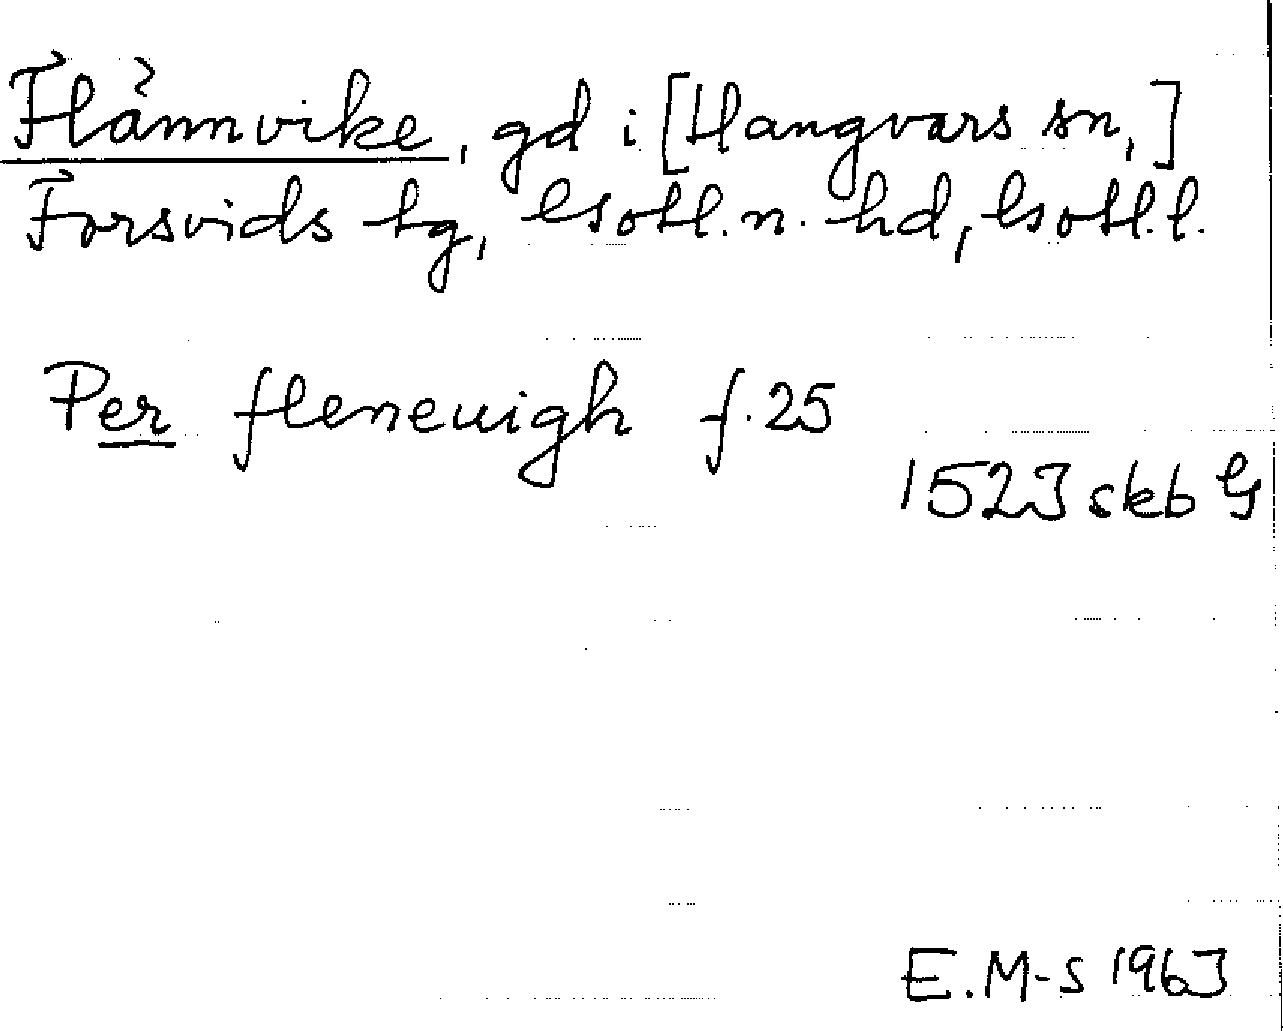 Flännvike, gd i [Hangvars sn,]
Forsvids tg, Gotl. n. hd, Gotl. l.
Per fleneuigh f. 25
1523 skb G
E. M-S 1963